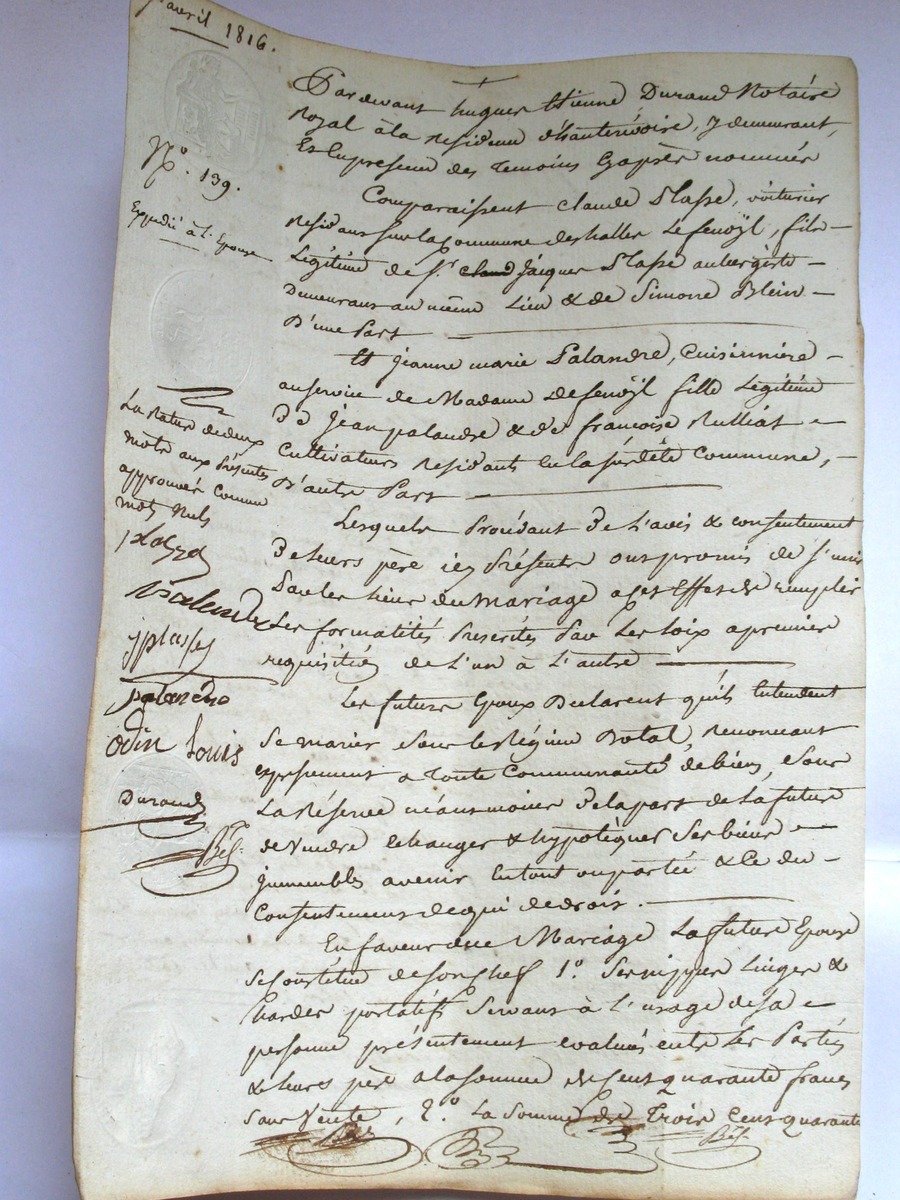 avril 1816.
N.º 139.
Expedié à l'Epouse
Pardevant hugues Etienne Durand Notaire
Royal à la residence d'hauterivoire, y demeurant,
Et En presence des temoins Cy après nommés
Comparaissent Claude Plasse, voiturier
Residant sur la Commune des halles Lefenoÿl, fils
Legitime de S.r Jacques Plasse aubergiste
Demeurans au même Lieu & de Simone Blein
D'une Part
Et jeanne marie Palandre, Cuisinnière
au service de Madame Defenoÿl fille Legitime
De jean palandre & de francoise Rulliat
Cultivateurs Residants En la susdite Commune,
D'autre Part
Lesquels Procédant De L'avis & consentement
De leurs père icy Présents ont promis de s'unir
Par les liens du Mariage a Cet Effet de remplir
Les formalités Prescrites Par Les Loix a premier
requisition de L'un à L'autre
Les futurs Epoux Declarent qu'ils Entendent
Se marier Sous le Régime Dotal, Renoncant
expressement a Toute Communauté de biens, Sous
La Réserve néanmoins De la part de La future
de Vendre Echanger & hypotequer Ses biens
jmmeubles avenir En tout ou partie & Ce du
Consentement de qui de droit.
En faveur duquel Mariage La future Epouse
Se Constitue de son Chef 1.º Ses nippes Linges &
hardes portatifs Servans à L'usage de sa
personne présentement evalués entre Les Parties
& leurs père a la somme de Cent quarante francs
Sans Vente, 2.º La Somme de Trois Cens quarante
La Rature de deux
mots aux Présentes
approuvée Comme
mots Nuls
plasse
palandre
jplasse
palandre
Odin Louis
Durand